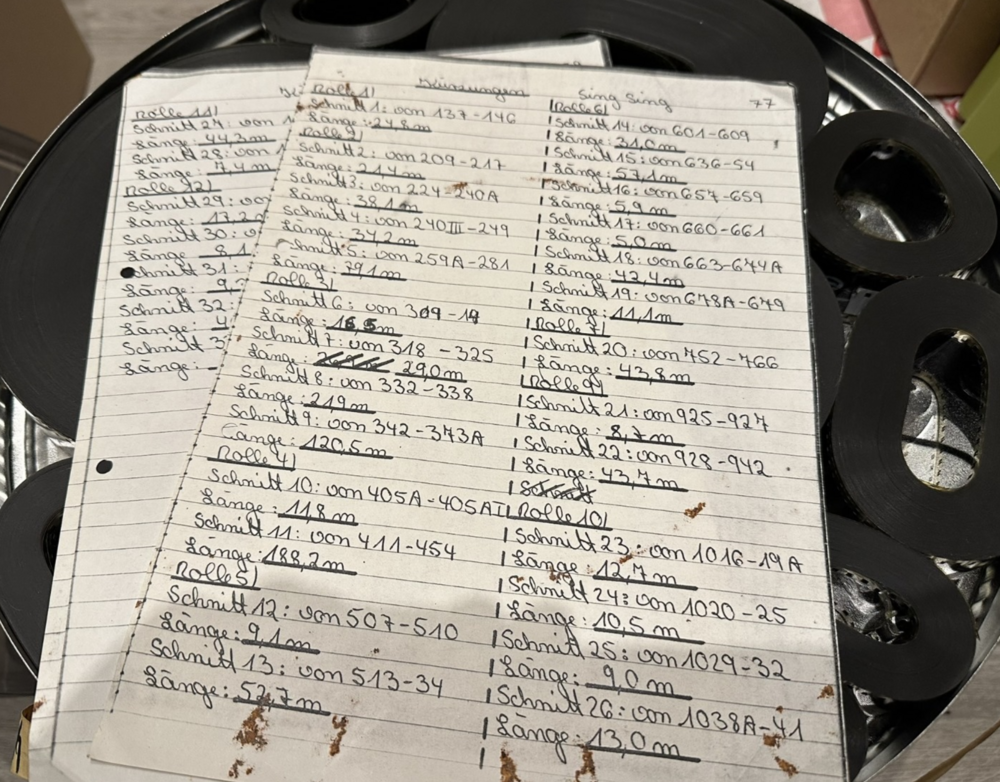 Kürzungen Sing Sing 77
Rolle 1)
Schnitt 1: von 137-146
Länge: 24,8m
Rolle 2)
Schnitt 2: von 209-217
Länge: 21,4m
Schnitt 3: von 224-240A
Länge: 38,1m
Schnitt 4: von 240III-249
Länge: 34,2m
Schnitt 5: von 259A-281
Länge: 79,1m
Rolle 3)
Schnitt 6: von 309-19
Länge: 16,5m
Schnitt 7: von 318-325
Länge: 29,0m
Schnitt 8: von 332-338
Länge: 21,9m
Schnitt 9: von 342-373A
Länge: 120,5m
Rolle 4)
Schnitt 10: von 405A-405AII
Länge: 11,8m
Schnitt 11: von 411-454
Länge: 188,2m
Rolle 5)
Schnitt 12: von 507-510
Länge: 9,1m
Schnitt 13: von 513-34
Länge: 52,7m
Rolle 6)
Schnitt 14: von 601-609
Länge: 31,0m
Schnitt 15: von 636-54
Länge: 57,1m
Schnitt 16: von 657-659
Länge: 5,9m
Schnitt 17: von 660-661
Länge: 5,0m
Schnitt 18: von 663-674A
Länge: 42,4m
Schnitt 19: von 678A-679
Länge: 11,1m
Rolle 7)
Schnitt 20: von 752-766
Länge: 43,8m
Rolle 9)
Schnitt 21: von 925-927
Länge: 8,7m
Schnitt 22: von 928-942
Länge: 43,7m
Schnitt
Rolle 10)
Schnitt 23: von 1016-19A
Länge: 12,7m
Schnitt 24: von 1020-25
Länge: 10,5m
Schnitt 25: von 1029-32
Länge: 9,0m
Schnitt 26: von 1038A-41
Länge: 13,0m
Rolle 11)
Schnitt 27: von 1
Länge: 44,3m
Schnitt 28: von
Länge: 7,4m
Rolle 12)
Schnitt 29: von
Länge: 17,2m
Schnitt 30:
Länge 8,1
Schnitt 31:
Länge: 9
Schnitt 32:
Länge: 4
Schnitt 3
Länge: